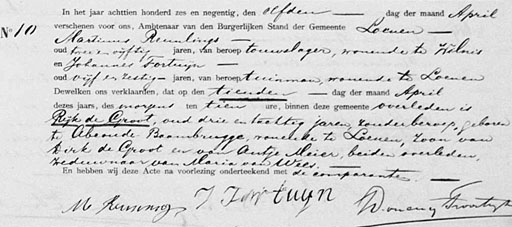 In het jaar achttien honderd zes en negentig, den elfden dag der maand April
No 10 verschenen voor ons, Ambtenaar van den Burgerlijken Stand der Gemeente Loenen
Martinus
oud twee en vijftig jaren, van beroep touwslager, wonende te Wilnis
en Johannes Fortuijn
oud vijf en zestig jaren, van beroep tuinman, wonende te Loenen
Dewelken ons verklaarden, dat op den tienden dag der maand April
dezes jaars, des morgens ten tien ure, binnen deze gemeente overleden is
Rijk de Groot, oud drie en tachtig jaren, zonder beroep, geboren
te Abcoude Baambrugge, wonende te Loenen, zoon van
Dirk de Groot en van Antje Meier, beiden overleden,
weduwnaar van Maria van Wees.
En hebben wij deze Acte na voorlezing onderteekend met de comparanten.
J Fortuyn